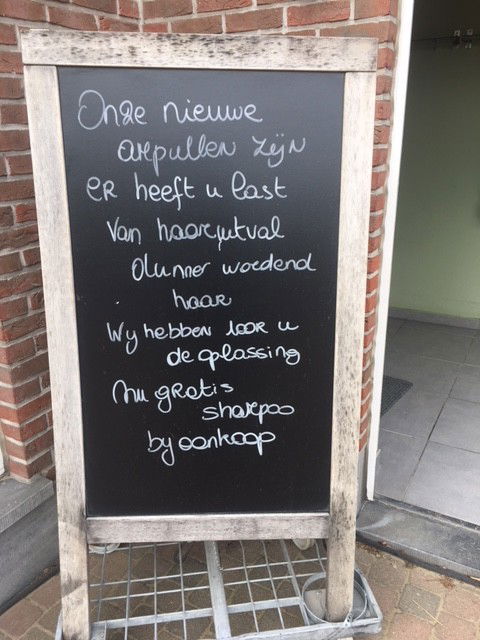 Onze nieuwe
ampullen zijn
er heeft u last
Van haaruitval
Dunner wordend
haar
Wij hebben voor u
de oplossing
Nu gratis
shampoo
bij aankoop